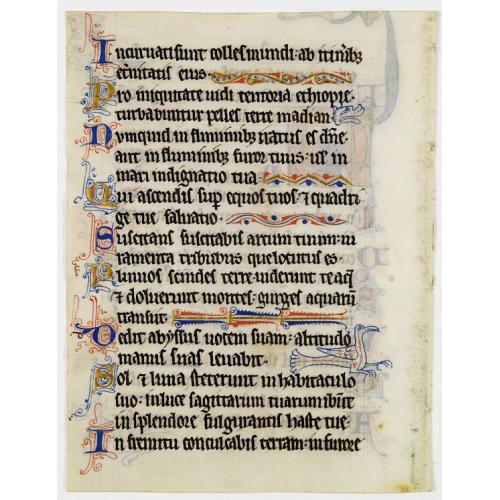 Incurvati sunt colles mundi: ab itinibȝ
et̾nitatis eius.
Pro iniquitate vidi tentoria ethiopie.
turbabuntur pelles terre madian.
Nunquid in fluminibȝ iratus es dn̄e.
aut in fluminibȝ furor tuus: uł in
mari indignatio tua.
Qui ascendis sup̄ equos tuos: ⁊ quadri
ge tue salvatio.
Suscitans suscitabis arcum tuum: iu
ramenta tribubus que locutus es.
Fluvios scindes terre: viderunt te aq̄
⁊ doluerunt montes: gurges aquarū
transiit.
Dedit abyssus vocem suam: altitudo
manus suas levabit.
Sol ⁊ luna steterunt in habitaculo
suo: in luce sagittarum tuarum ibūt
in splendore fulgurantis haste tue.
In fremitu conculcabis terram: in furore